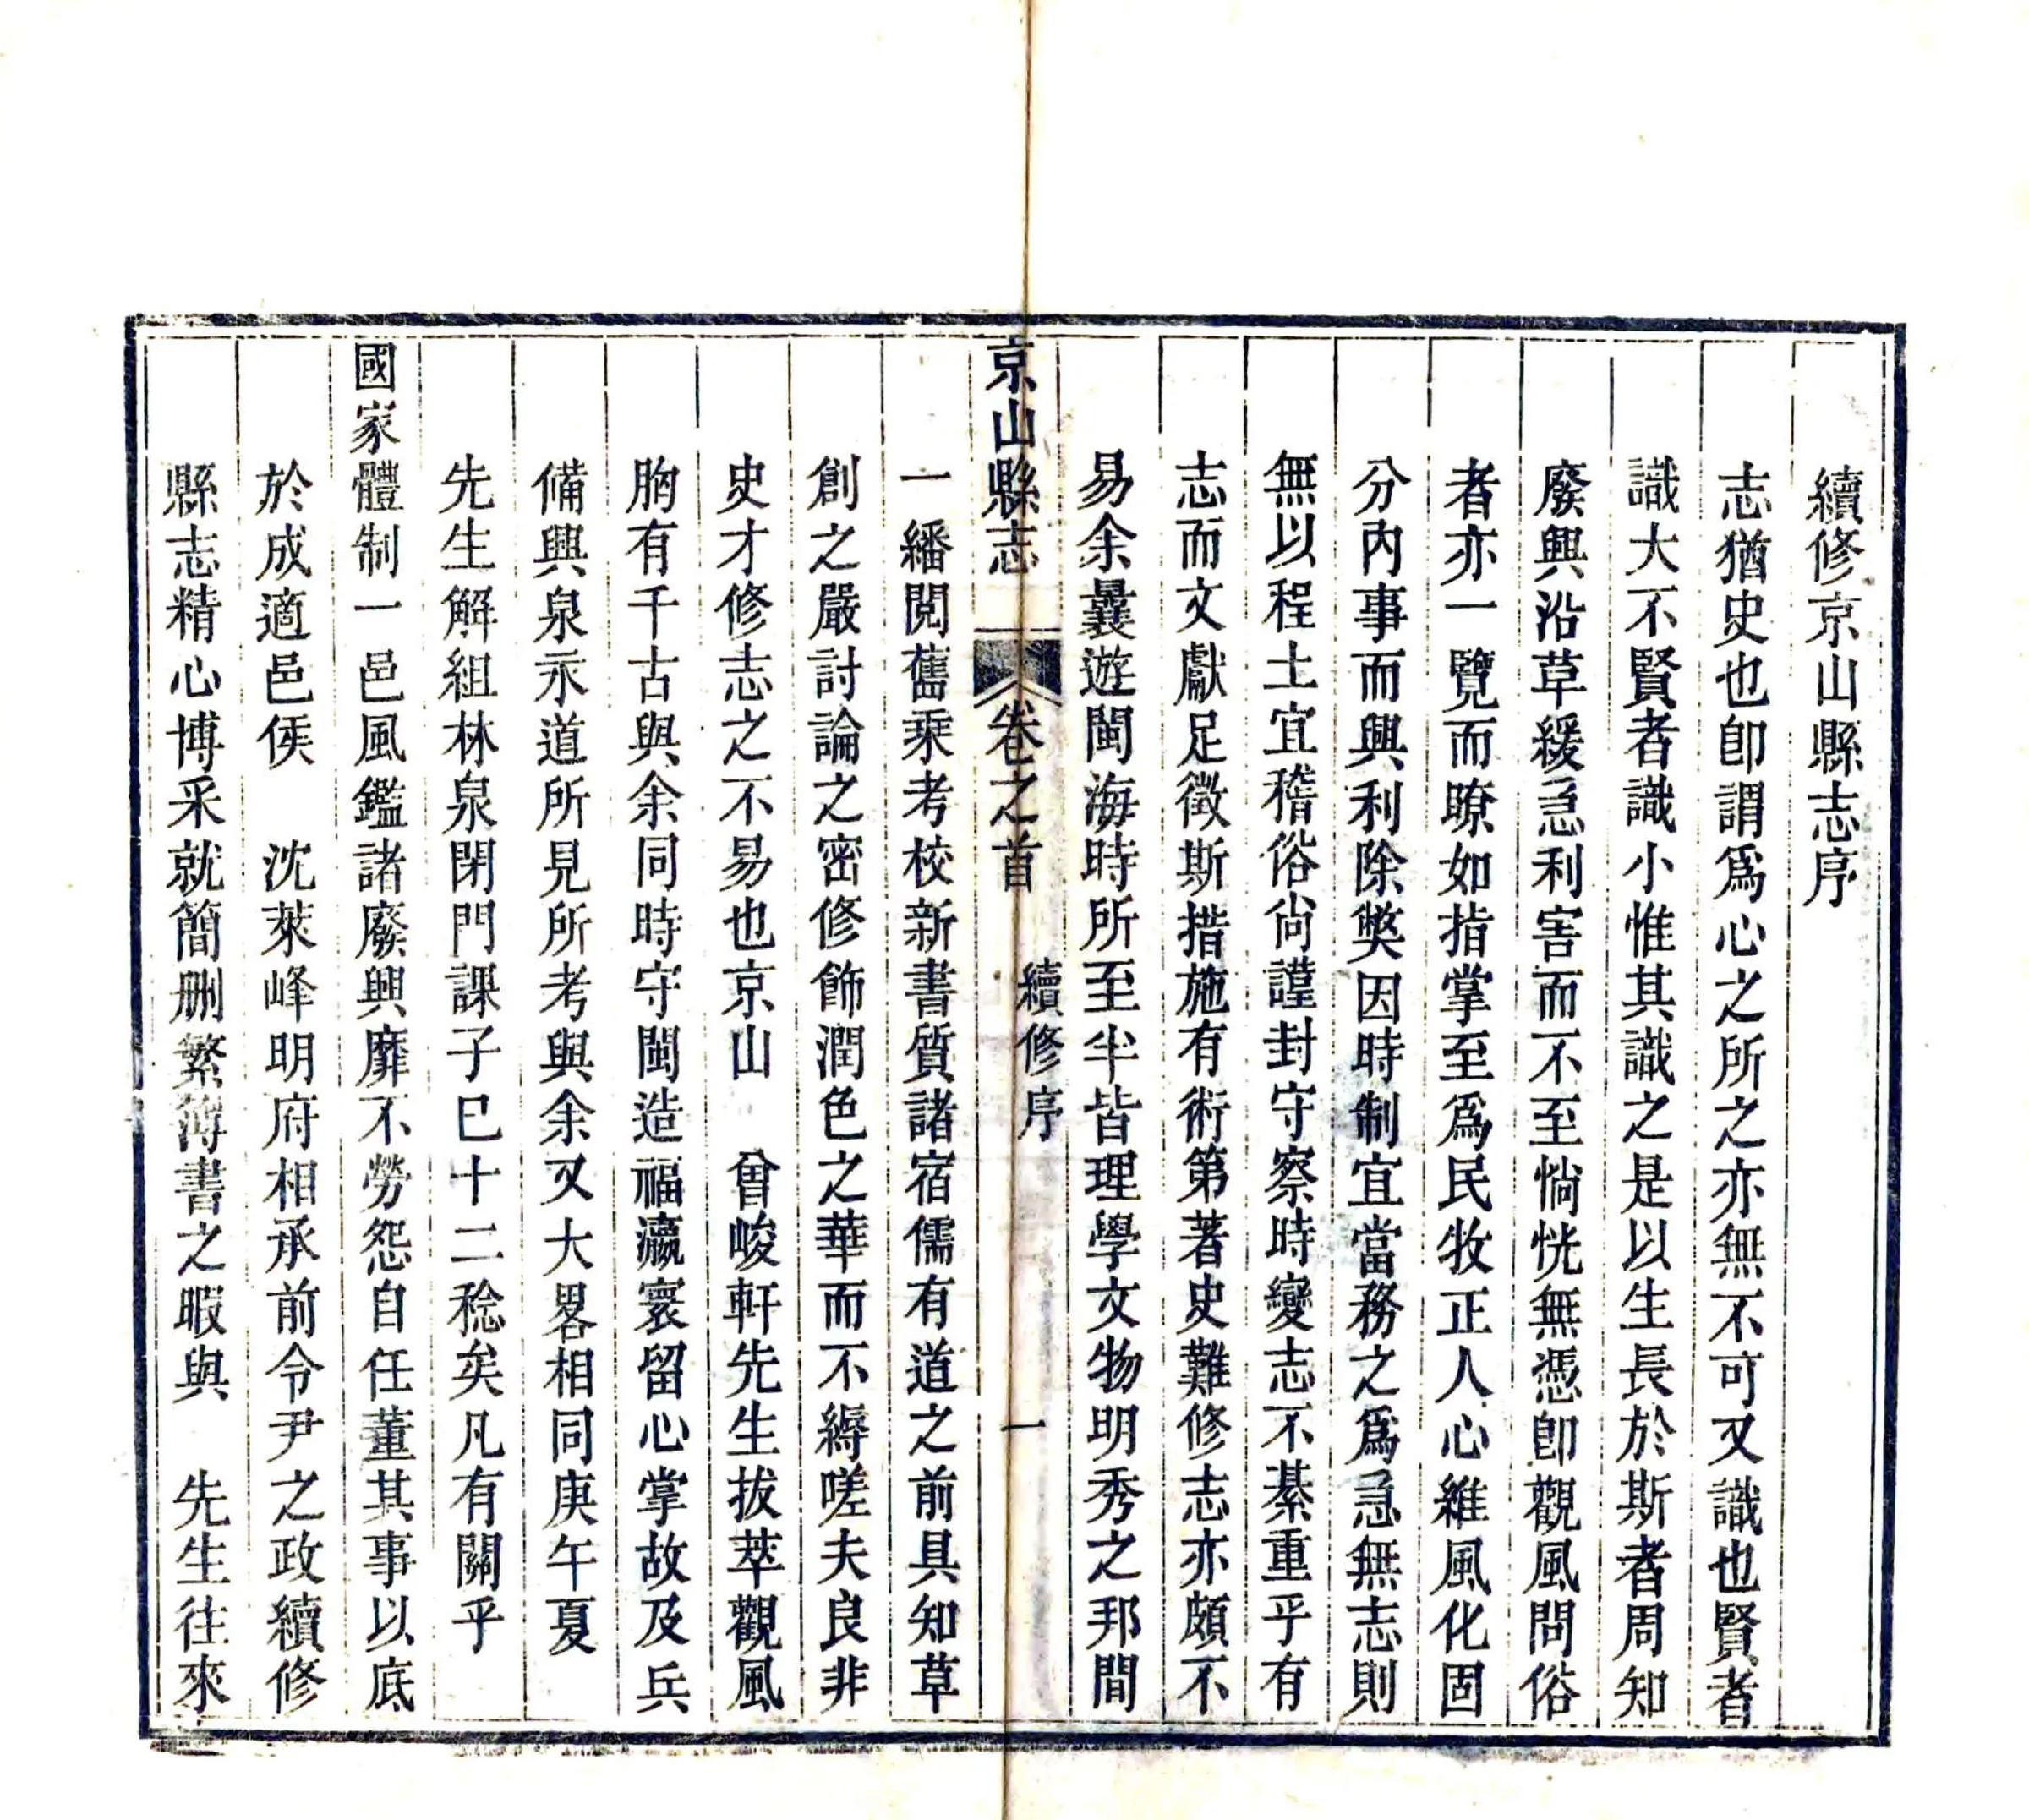 續修京山縣志序
志猶史也卽謂爲心之所之亦無不可又識也賢者
識大不賢者識小惟其識之是以生長於斯者周知
廢興沿革緩急利害而不至惝恍無憑卽觀風問俗
者亦一覽而瞭如指掌至爲民牧正人心維風化固
分內事而興利除獘因時制宜當務之爲急無志則
無以程土宜稽俗尙謹封守察時變志不綦重乎有
志而文獻足徵斯措施有術第著史難修志亦頗不
易余曩遊閩海時所至半皆理學文物明秀之邦間
京山縣志 卷之首 續修序 一
一繙閱舊乘考校新書質諸宿儒有道之前具知草
創之嚴討論之密修飾潤色之華而不縟嗟夫良非
史才修志之不易也京山 曾峻軒先生拔萃觀風
胸有千古與余同時守閩造福瀛寰留心掌故及兵
備興泉永道所見所考與余又大畧相同庚午夏
先生解組林泉閉門課子已十二稔矣凡有關乎
國家體制一邑風鑑諸廢興靡不勞怨自任董其事以底
於成適邑侯 沈萊峰明府相承前令尹之政續修
縣志精心博采就簡刪繁簿書之暇與 先生往來